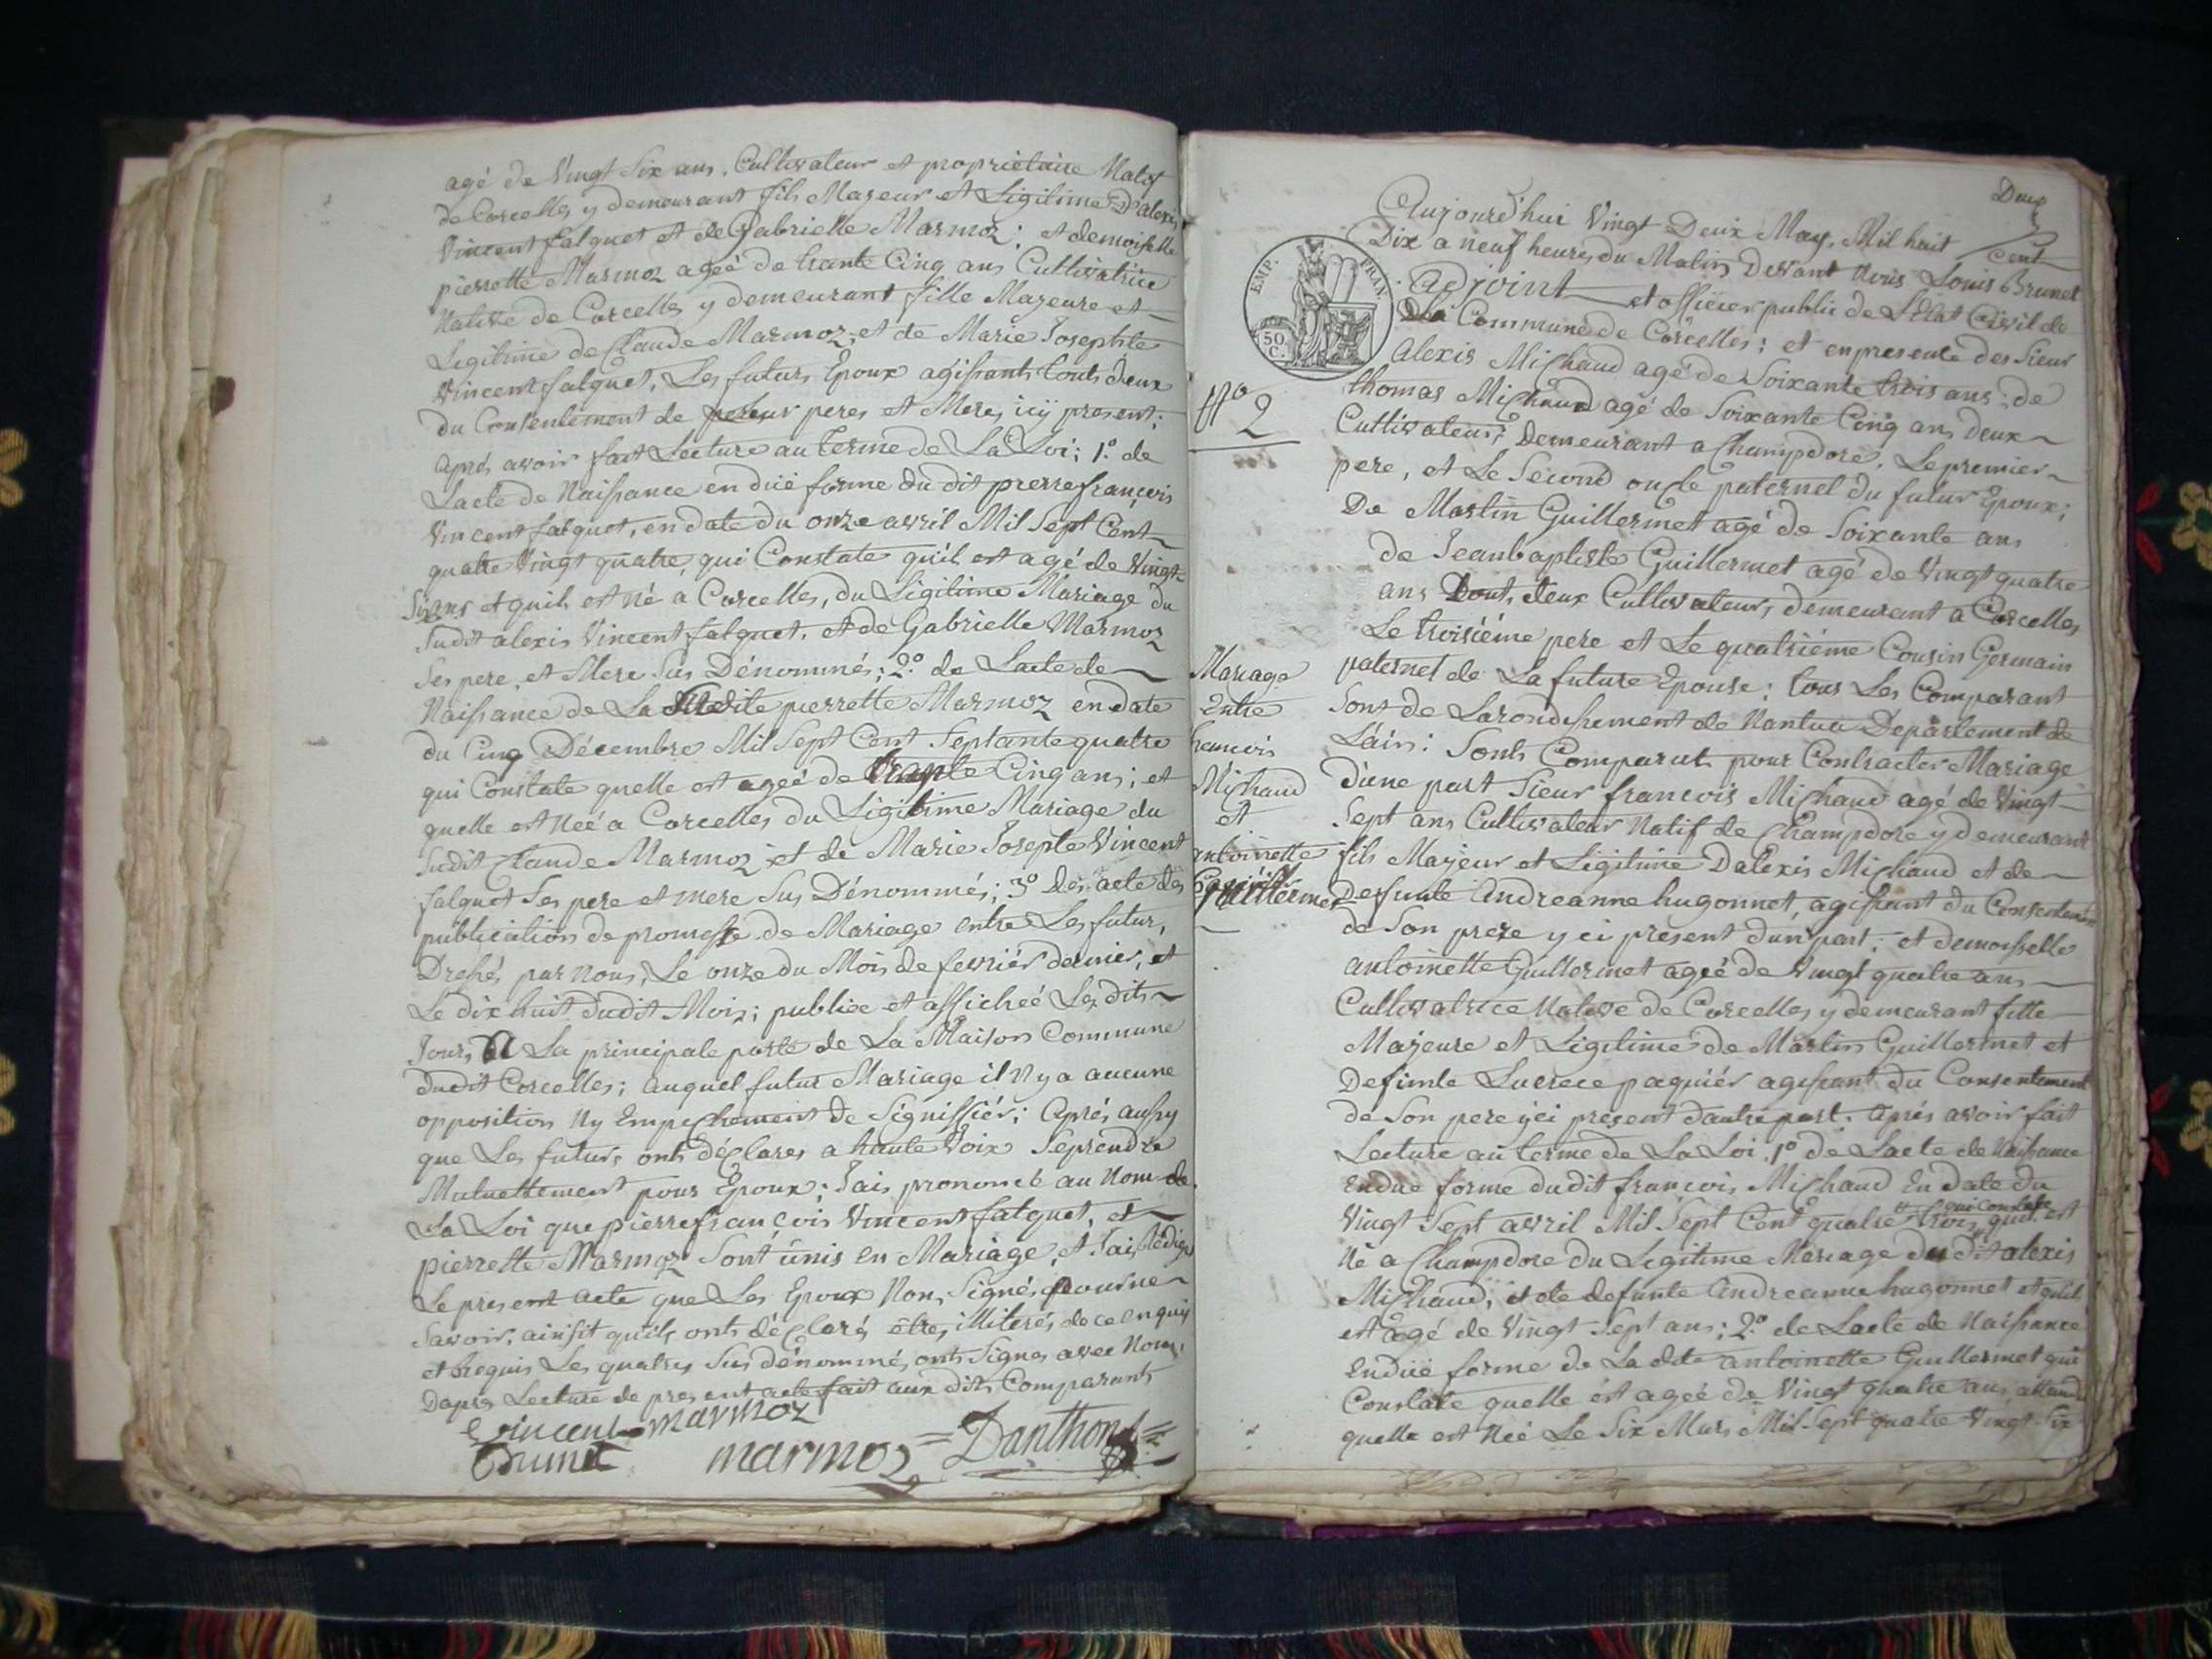 agé de Vingt Six ans, Cultivateur et propriétaire Natif
de Corcelles y demeurant fils Majeur et Légitime D'alexis
Vincent falquet et de Gabrielle Marmoz; et demoiselle
pierrette Marmoz ageé de trante Cinq ans Cultivatrice
Native de Corcelles y demeurant fille Majeure et
Legitime de Claude Marmoz, et de Marie Josephte
Vincent falquet, Les futurs Epoux agissants touts deux
du Consentement de leur peres et Meres icy present;
Aprés avoir fait Lecture au terme de La Loi; 1.º de
Lacte de Naissance en duë forme du dit pierre françois
Vincent falquet, en date du onze avril Mil Sept Cent
quatre Vingt quatre, qui Constate quil est agé de Vingt
Six ans et quil est né a Corcelles, du Légitime Mariage du
Sudit alexis Vincent falquet, et de Gabrielle Marmoz
Ses pere et Mere Sus Dénommés; 2.º de Lacte de
Naissance de La Sudite pierrette Marmoz en date
du Cinq Décembre Mil Sept Cent Septante quatre
qui Constate quelle est ageé de trante Cinq ans; et
quelle est Neé a Corcelles du Légitime Mariage du
Sudit Claude Marmoz et de Marie Josepte Vincent
falquet Ses pere et mere Sus Dénommés; 3º Des acte des
publication de promesse de Mariage entre Les futur,
Dressés par Nous, Le onze du Mois de fevriér dernier, et
Le dix huit dudit Mois; publiée et affichéé Les dits
Jours A La principale porte de La Maison Commune
dudit Corcelles; auquel futur Mariage il Ny a aucune
opposition Ny Empechement de Signiffiér; Aprés aussy
que Les futurs onts déClares a haute Voix Seprendre
Mutuellement pour Epoux; Jais prononcé au Nom de
La Loi que pierre françois Vincent falquet, et
pierrette Marmoz Sont ûnis en Mariage, et Jais Rédigé
Le present acte que Les Epoux Nons Signés pour ne
Savoir, ainsit quils onts déClarés êtres illiterés de ce enquis
et Requis Les quatres Sus dénommés onts Signes avec Nous,
Dapres Lecture de present acte fait aux dits Comparants
Vincent marmoz
Brunet marmoz Danthon
Deux
Aujourd'hui Vingt Deux May, Mil huit Cent
Dix a neuf heures du Matin Devant Nous Louis Brunet
EMP. FRAN.
50 C.
Adjoint et officier public de L'état Civil de
La Commune de Corcelles; et en presence des Sieur
Alexis Michaud agé de Soixante trois ans; de
Nº 2
thomas Michaud agé de Soixante Cinq ans deux
Cultivateurs Demeurant a Champdore, Le premier
pere, et Le Second oncle paternel du futur Epoux;
De Martin Guillermet agé de Soixante ans
de Jeanbaptiste Guillermet agé de Vingt quatre
ans touts deux Cultivateurs demeurant a Corcelles
Le troisiéme pere et Le quatriéme Cousin Germain
paternel de La future Epouse; tous Les Comparant
Sont de Larondissement de Nantua Département de
Lain: Sonts Comparuts pour Contracter Mariage
d'une part Sieur francois Michaud agé de Vingt
Sept ans Cultivateur Natif de Champdore y demeurant
fils Majeur et Légitime Dalexis Michaud et de
Deffunte Andreanne hugonnet, agissant du Consentement
de Son preze y ci present dun part; et demoisselle
Mariage
Entre
francois
Michaud
et
antoinette
Guillermet
antoinette Guillermet ageé de Vingt quatre ans
Cultivatrice Native de Corcelles y demeurant fille
Majeure et Légitime de Martin Guillermet et
Defunte Lucrece paquiér agissant du Consentement
de Son pere yci present dautre part. Aprés avoir fait
Lecture au terme de La Loi, 1º de Lacte de Naissance
en due forme dudit francois Michaud en date du
Vingt Sept avril Mil Sept Cent quatre vt trois qui Constate quil est
Né a Champdore du Legitime Mariage du dit alexis
Michaud, et de defunte Andreanne hugonnet et quil
est agé de Vingt Sept ans; 2.º de Lacte de Naissance
enduë forme de La dite antoinette Guillermet qui
Constate quelle est ageé de Vingt quatre ans attendu
quelle est Neé Le Six Mars Mil Sept quatre Vingt Six